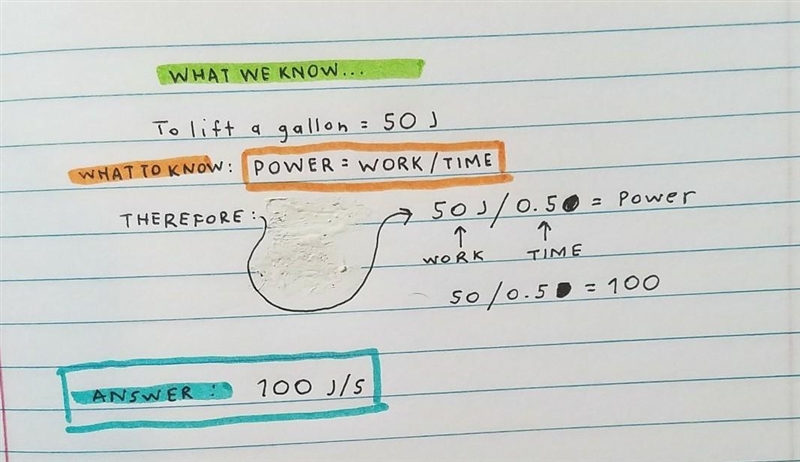 WHAT WE KNOW...
To lift a gallon = 50 J
WHAT TO KNOW: POWER = WORK/TIME
THEREFORE: 50 J / 0.5 = Power
WORK TIME
50 / 0.5 = 100
ANSWER: 100 J/S